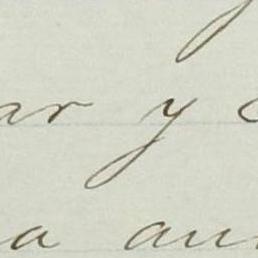 ar y
a au